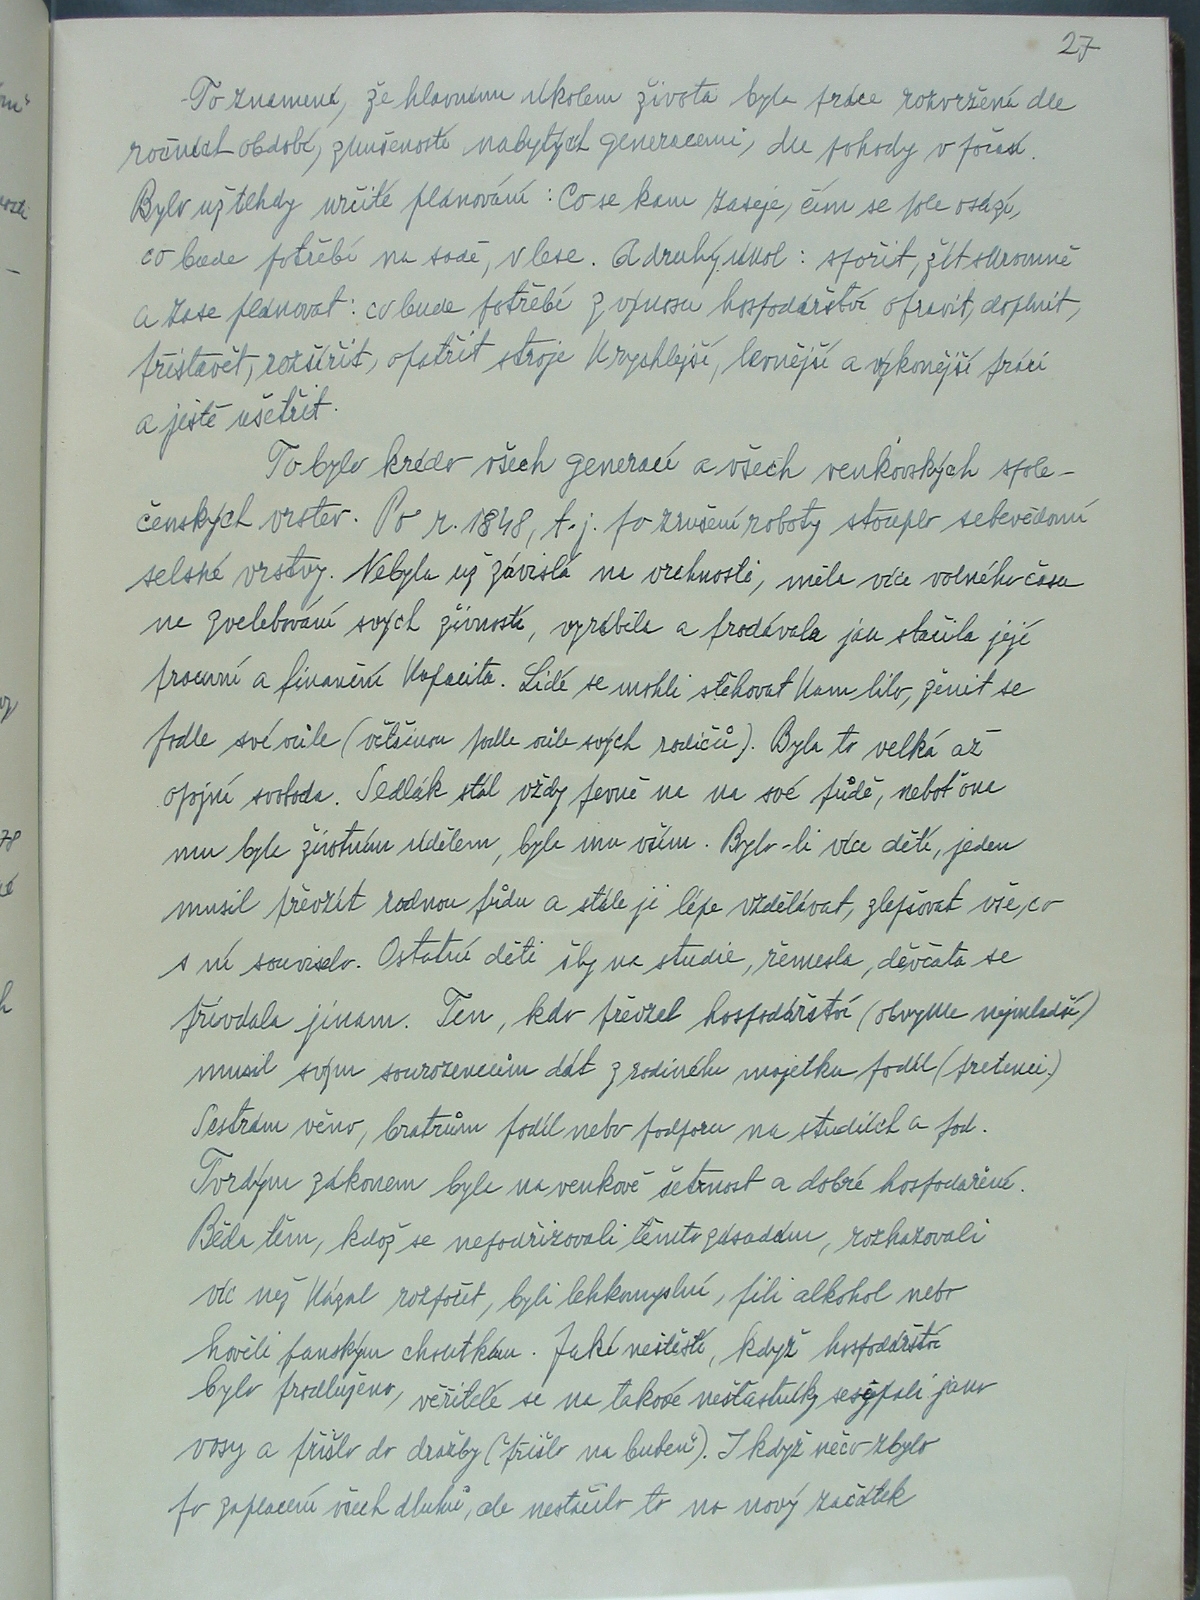 27
To znamená, že hlavním úkolem života byla práce rozvržená dle
ročních období, zkušeností nabytých generacemi, dle pohody v počasí.
Bylo už tehdy určité plánování: Co se kam zaseje, čím se pole osází,
co bude potřebí na sadě, v lese. A druhý úkol: spořit, žít skromně
a zase plánovat: co bude potřebí z výnosu hospodářství opravit, doplnit,
přistavět, rozšířit, opatřit stroje k rychlejší, levnější a výkonější práci
a ještě ušetřit.
To bylo krédo všech generací a všech venkovských spole-
čenských vrstev. Po r. 1848, t.j. po zrušení roboty stouplo sebevědomí
selské vrstvy. Nebyla už závislá na vrchnosti, měla více volného času
na zvelebování svých živností, vyráběla a prodávala jak stačila její
pracovní a finanční kapacita. Lidé se mohli stěhovat kam libo, ženit se
podle své vůle (většinou podle vůle svých rodičů). Byla to velká až
opojná svoboda. Sedlák stál vždy pevně na na své půdě, neboť ona
mu byla životním údělem, byla mu vším. Bylo-li více dětí, jeden
musil převzít rodnou půdu a stále ji lépe vzdělávat, zlepšovat vše, co
s ní souviselo. Ostatní děti šly na studie, řemesla, děvčata se
přivdala jinam. Ten, kdo převzal hospodářství (obvykle nejmladší)
musil svým sourozencům dát z rodiného majetku podíl (pretenci.)
Sestrám věno, bratrům podíl nebo podporu na studiích a pod.
Tvrdým zákonem byla na venkově šetrnost a dobré hospodaření.
Běda těm, kdož se nepodřizovali těmto zásadám, rozhazovali
víc než kázal rozpočet, byli lehkomyslní, pili alkohol nebo
hověli panským choutkám. Jaké neštěstí, když hospodářství
bylo prodluženo, věřitelé se na takové nešťastníky sesypali jako
vosy a přišlo do dražby ("přišlo na buben"). I když něco zbylo
po zaplacení všech dluhů, ale nestačilo to na nový začátek